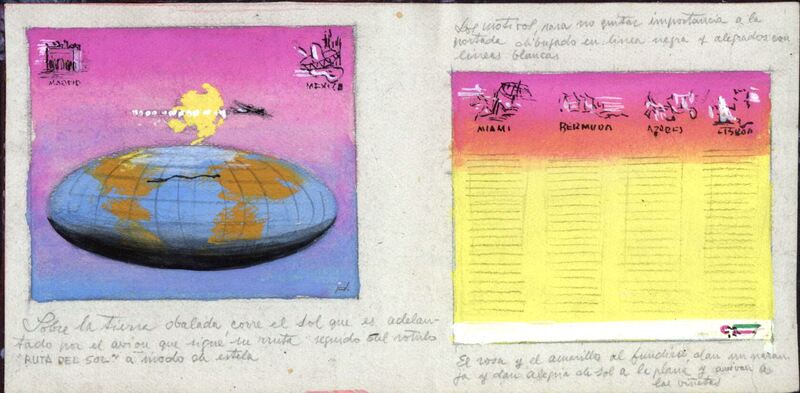 MADRID
MEXICO
Sobre la tierra obalada corre el sol que es adelan-
tado por el avion que sigue su ruta seguido del rotulo
"RUTA DEL SOL" a modo de estela
Los motivos para no quitar importancia a la
portada dibujado en linea negra y alegrados con
lineas blancas
MIAMI
BERMUDA
AZORES
LISBOA
El rosa y el amarillo al fundirse dan un naran-
ja y dan alegria de sol a la plana y avivan a
las viñetas